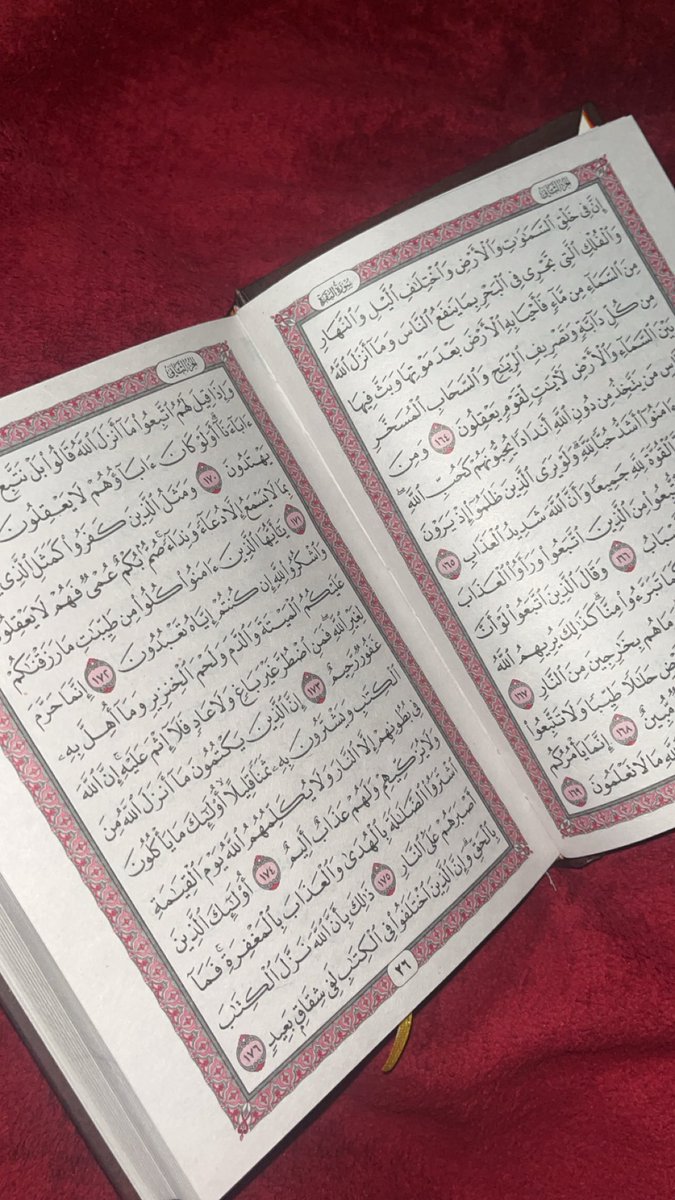 سورة البقرة
الجزء الثاني
إِنَّ فِي خَلْقِ السَّمَٰوَٰتِ وَالْأَرْضِ وَاخْتِلَٰفِ الَّيْلِ وَالنَّهَارِ
وَالْفُلْكِ الَّتِي تَجْرِي فِي الْبَحْرِ بِمَا يَنفَعُ النَّاسَ وَمَا أَنزَلَ اللَّهُ
مِنَ السَّمَاءِ مِن مَّاءٍ فَأَحْيَا بِهِ الْأَرْضَ بَعْدَ مَوْتِهَا وَبَثَّ فِيهَا
مِن كُلِّ دَابَّةٍ وَتَصْرِيفِ الرِّيَٰحِ وَالسَّحَابِ الْمُسَخَّرِ
بَيْنَ السَّمَاءِ وَالْأَرْضِ لَءَايَٰتٍ لِّقَوْمٍ يَعْقِلُونَ ١٦٤ وَمِنَ
مَن يَتَّخِذُ مِن دُونِ اللَّهِ أَندَادًا يُحِبُّونَهُمْ كَحُبِّ اللَّهِ
ءَامَنُوا أَشَدُّ حُبًّا لِّلَّهِ وَلَوْ يَرَى الَّذِينَ ظَلَمُوا إِذْ يَرَوْنَ
الْقُوَّةَ لِلَّهِ جَمِيعًا وَأَنَّ اللَّهَ شَدِيدُ الْعَذَابِ ١٦٥
مِنَ الَّذِينَ اتَّبَعُوا وَرَأَوُا الْعَذَابَ
١٦٦ وَقَالَ الَّذِينَ اتَّبَعُوا لَوْ أَنَّ
تَبَرَّءُوا مِنَّا كَذَٰلِكَ يُرِيهِمُ اللَّهُ
هُم بِخَٰرِجِينَ مِنَ النَّارِ ١٦٧
حَلَٰلًا طَيِّبًا وَلَا تَتَّبِعُوا
١٦٨ إِنَّمَا يَأْمُرُكُم
مَا لَا تَعْلَمُونَ ١٦٩
الجزء الثاني
وَإِذَا قِيلَ لَهُمُ اتَّبِعُوا مَا أَنزَلَ اللَّهُ قَالُوا بَلْ نَتَّبِعُ
ءَابَاءَنَا أَوَلَوْ كَانَ ءَابَاؤُهُمْ لَا يَعْقِلُونَ
يَهْتَدُونَ ١٧٠ وَمَثَلُ الَّذِينَ كَفَرُوا كَمَثَلِ الَّذِي
بِمَا لَا يَسْمَعُ إِلَّا دُعَاءً وَنِدَاءً صُمٌّ بُكْمٌ عُمْيٌ فَهُمْ لَا يَعْقِلُونَ
١٧١ يَٰأَيُّهَا الَّذِينَ ءَامَنُوا كُلُوا مِن طَيِّبَٰتِ مَا رَزَقْنَٰكُمْ
وَاشْكُرُوا لِلَّهِ إِن كُنتُمْ إِيَّاهُ تَعْبُدُونَ ١٧٢ إِنَّمَا حَرَّمَ
عَلَيْكُمُ الْمَيْتَةَ وَالدَّمَ وَلَحْمَ الْخِنزِيرِ وَمَا أُهِلَّ بِهِ
لِغَيْرِ اللَّهِ فَمَنِ اضْطُرَّ غَيْرَ بَاغٍ وَلَا عَادٍ فَلَا إِثْمَ عَلَيْهِ إِنَّ اللَّهَ
غَفُورٌ رَّحِيمٌ ١٧٣ إِنَّ الَّذِينَ يَكْتُمُونَ مَا أَنزَلَ اللَّهُ مِنَ
الْكِتَٰبِ وَيَشْتَرُونَ بِهِ ثَمَنًا قَلِيلًا أُولَٰئِكَ مَا يَأْكُلُونَ
فِي بُطُونِهِمْ إِلَّا النَّارَ وَلَا يُكَلِّمُهُمُ اللَّهُ يَوْمَ الْقِيَٰمَةِ
وَلَا يُزَكِّيهِمْ وَلَهُمْ عَذَابٌ أَلِيمٌ ١٧٤ أُولَٰئِكَ الَّذِينَ
اشْتَرَوُا الضَّلَٰلَةَ بِالْهُدَىٰ وَالْعَذَابَ بِالْمَغْفِرَةِ فَمَا
أَصْبَرَهُمْ عَلَى النَّارِ ١٧٥ ذَٰلِكَ بِأَنَّ اللَّهَ نَزَّلَ الْكِتَٰبَ
بِالْحَقِّ وَإِنَّ الَّذِينَ اخْتَلَفُوا فِي الْكِتَٰبِ لَفِي شِقَاقٍ بَعِيدٍ ١٧٦
٢٦